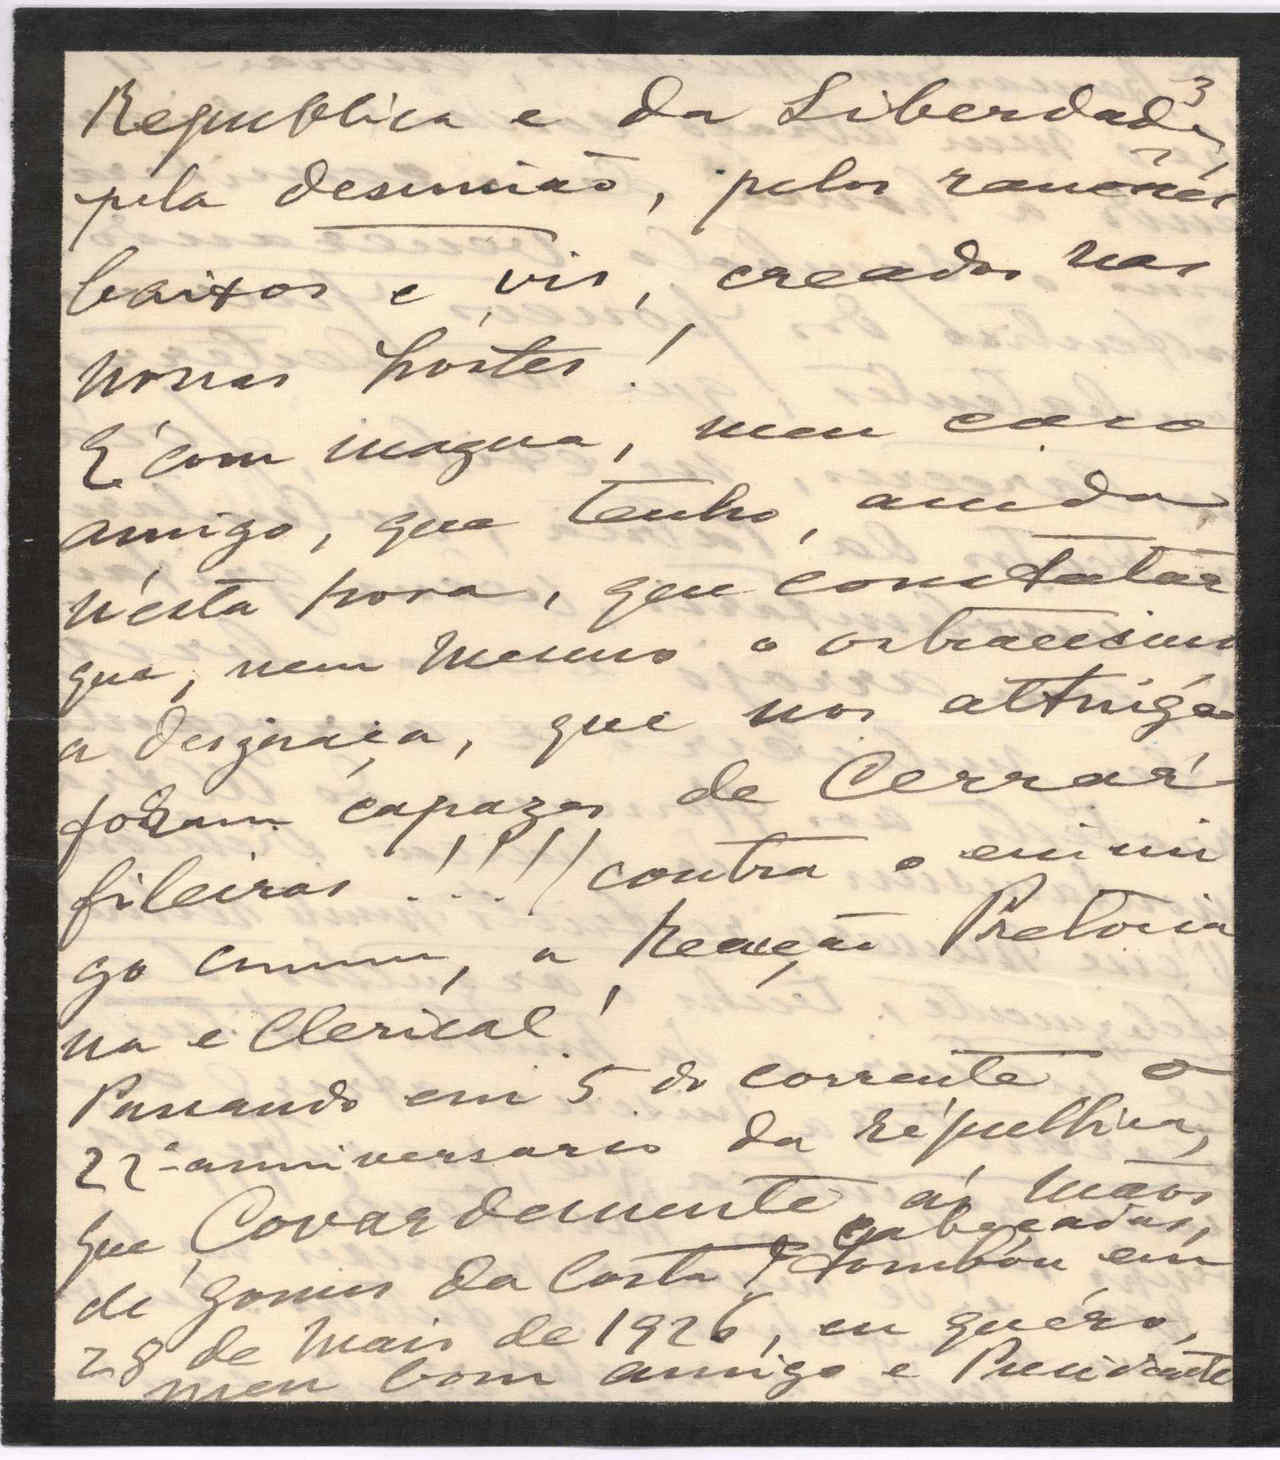 3
Republica e da Liberdade,
pela desunião, pelos rancores
baixos e vis, creados nas
nossas hóstes!
É com magua, meu caro
amigo, que tenho, ainda
n'esta hora, que constatar
que, nem mesmo o ostracismo
a desgraça, que nos attinge
foram capazes de Cerrar
fileiras!!!! contra o inimi
go comum, a Reacção Pretoria
na e Clerical!
Passando em 5 do corrente o
22º anniversario da républica,
que, Covardemente ás mãos
de Gomes da Costa e Cabeçadas,
tombou em
28 de Maio de 1926, eu quéro,
meu bom amigo e Presidente